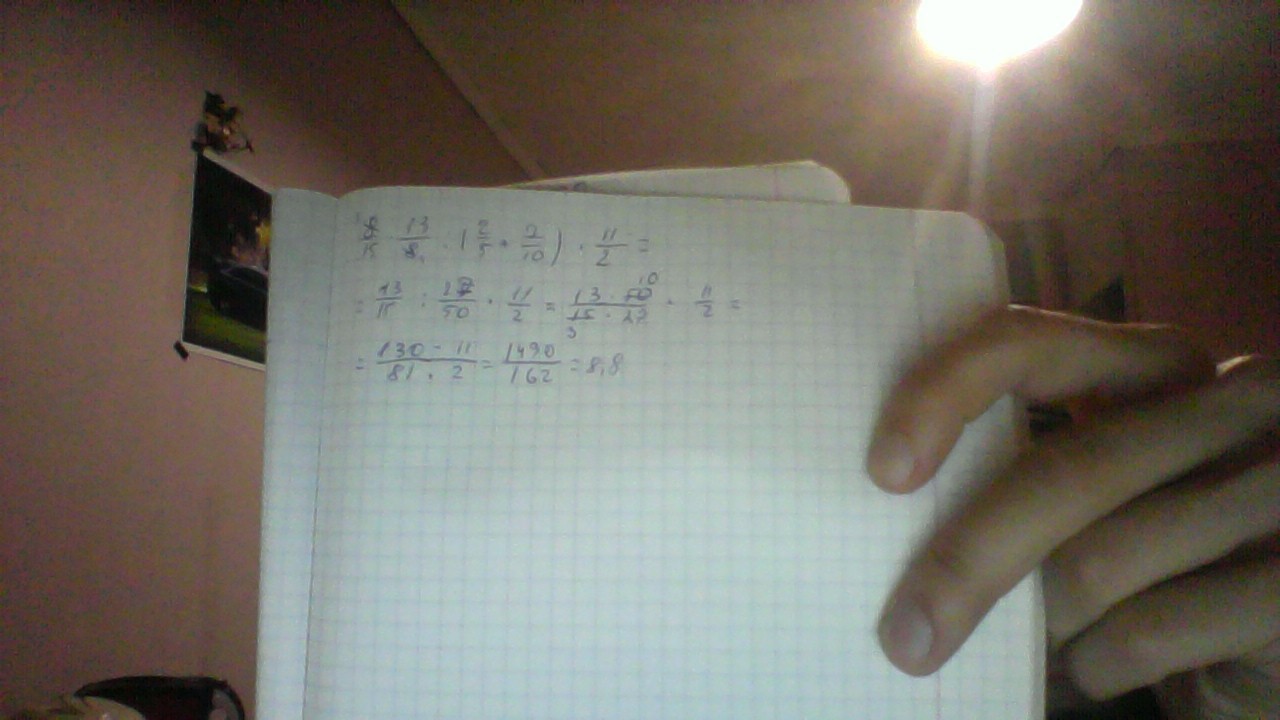 8/15 · 13/8 : (2/5 + 7/10) · 11/2 =
= 13/15 : 27/50 · 11/2 = 13 · 50 10/15 3 · 27 · 11/2 =
= 130 - 11/81 · 2 = 1430/162 = 8,8